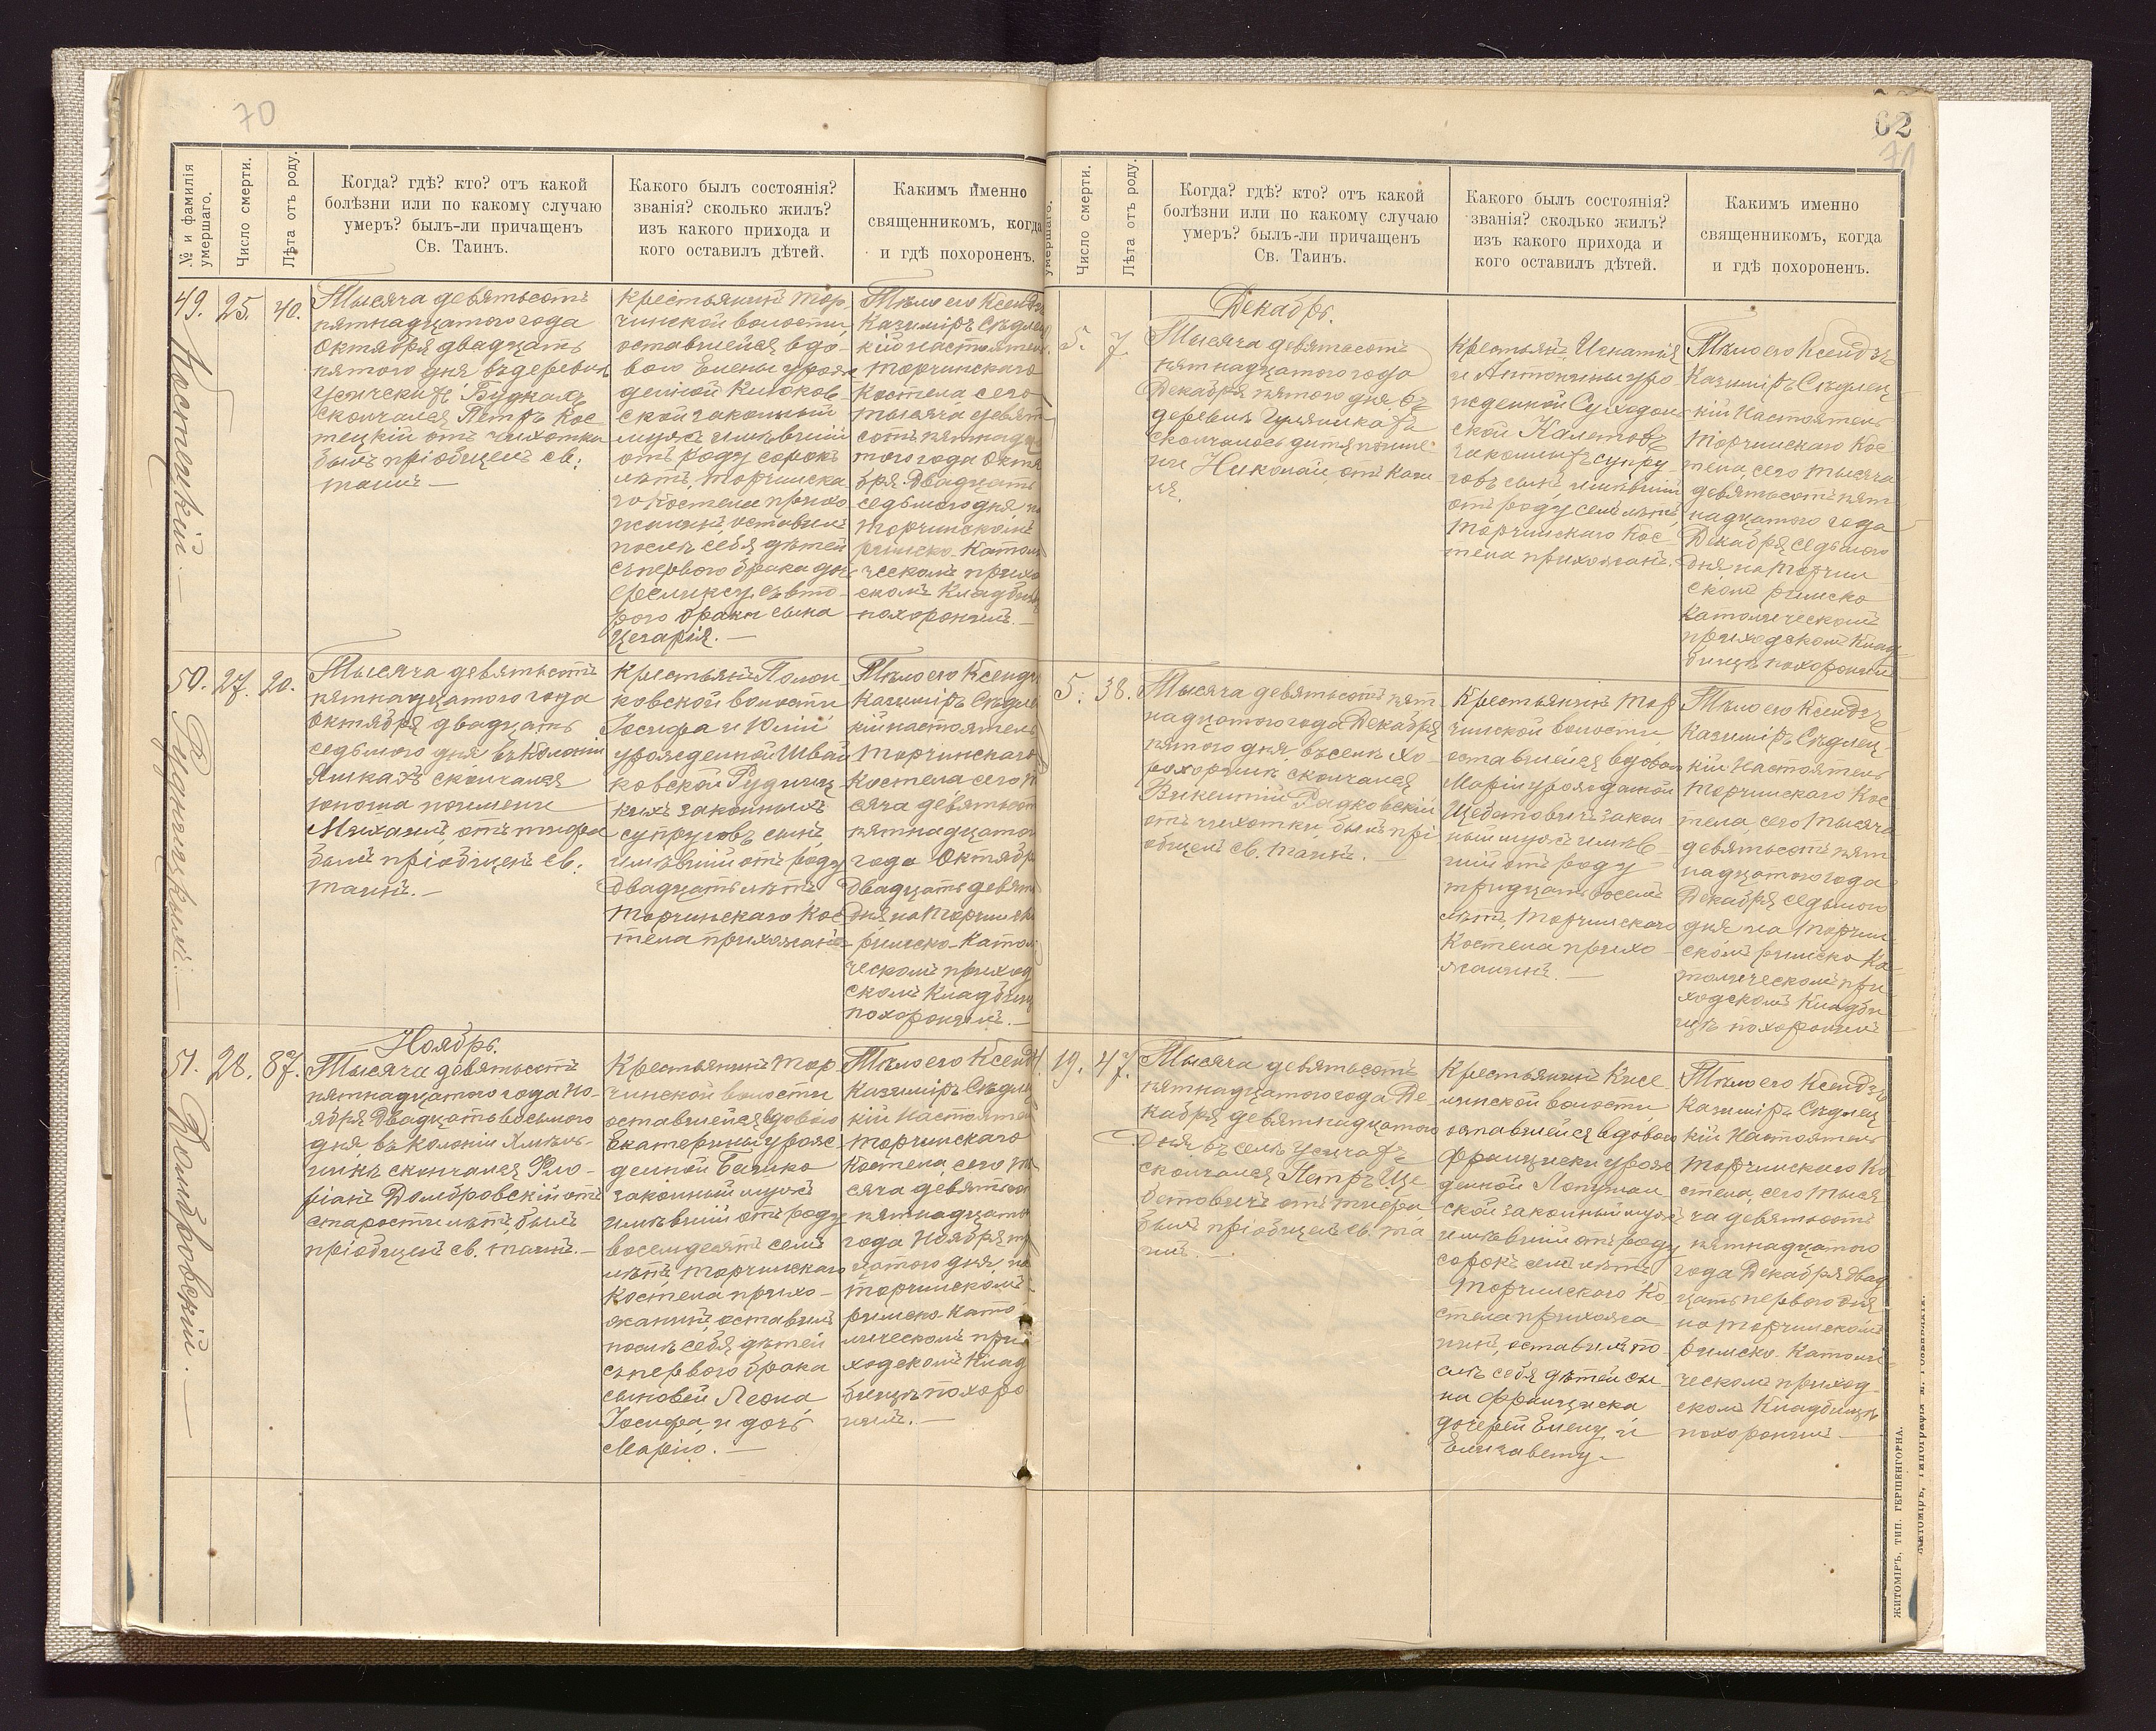 70
№ и фамилія умершаго.
Число смерти.
Лѣта отъ роду.
Когда? гдѣ? кто? отъ какой
болѣзни или по какому случаю
умеръ? былъ-ли причащенъ
Св. Таинъ.
Какого былъ состоянія?
званія? сколько жилъ?
изъ какого прихода и
кого оставилъ дѣтей.
Каким именно
священникомъ, когда
и гдѣ похороненъ.
49.
Костецкій.—
25.
40.
Тысяча девятьсотъ
пятнадцатого года
Октября двадцать
пятого дня, въ деревнѣ
Будкахъ
скончался Петръ Кос-
тецкій отъ чихотки
былъ пріобщенъ св:
таинъ.—
Крестьянинъ Тор-
чинской волости,
оставшейся вдо-
вою Елены урож
денной
ской законный
мужъ имѣвшій
отъ роду сорокъ
лѣтъ, Торчинска
го Костела прихо
жанинъ, оставилъ
послѣ себя дѣтей
съ первого брака дочь
Феликсу, съ вто-
рого брака сына
Цезарія.—
Тѣло его Ксендзъ
Казиміръ Сѣдлец
кій Настоятель
Торчинскаго
Костела сего
тысяча девять
сотъ пятнадца
того года Октя
бря двадцать
седьмого дня на
Торчинскомъ
римско-Католи
ческомъ прихо
скомъ Кладбищ
похоронилъ.—
50.
27.
20.
Тысяча девятьсотъ
пятнадцатого года
Октября двадцать
седьмого дня, въ Колоніи
скончался
юноша по имени
Михаилъ, отъ тифа
былъ пріобщенъ св:
таинъ.—
Крестьянъ Полон
ковской волости
Іосифа и Юліи
урожденной Швай
ковской Рудниц
кихъ законныхъ
супруговъ сынъ,
имѣвшій отъ роду
двадцать лѣтъ
Торчинскаго Кос
тела прихожанъ
Тѣло его Ксендз
Казиміръ Сѣдле
кій настоятель
Торчинскаго
Костела сего ты
сяча девятьсот
пятнадцатого
года Октября
двадцать девят
дня на Торчинск
римско-Католи
ческомъ приход
скомъ Кладбищ
похоронилъ.—
Ноябрь.
51.
Домбровскій.—
28.
87.
Тысяча девятьсотъ
пятнадцатого года Но-
ября двадцать восьмого
дня, въ Колоніи
скончался Фло-
ріанъ Домбровскій отъ
старости лѣтъ, былъ
пріобщенъ св. таинъ.—
Крестьянинъ Тор
чинской волости
оставшейся вдовою
Екатерины урож
денной
законный мужъ
имѣвшій отъ роду
восемдесятъ семь
лѣтъ, Торчинскаго
Костела прихо-
жанинъ, оставилъ
послѣ себя дѣтей
съ первого брака
сыновей Леона,
Іосифа, и дочь
Марію.—
Тѣло его Ксендз
Казиміръ Сѣдлец
кій Настоятел
Торчинскаго
Костела, сего ты
сяча девятьсо
пятнадцато
года Ноября
дня, на
Торчинскомъ
римско-Като-
лическомъ при
ходскомъ Клад
бищѣ похоро
нилъ.—
62
71
умершаго.
Число смерти.
Лѣта отъ роду.
Когда? гдѣ? кто? отъ какой
болѣзни или по какому случаю
умеръ? былъ-ли причащенъ
Св. Таинъ.
Какого былъ состоянія?
званія? сколько жилъ?
изъ какого прихода и
кого оставилъ дѣтей.
Каким именно
священникомъ, когда
и гдѣ похороненъ.
Декабрь.
5.
7.
Тысяча девятьсотъ
пятнадцатого года
Декабря пятого дня въ
деревнѣ
скончалось дитя по име-
ни Николай, отъ каш
ля.
Крестьянъ, Игнатія
и Антонины уро-
жденной Суходоль
ской
законныхъ супру-
говъ сынъ, имѣвшій
отъ роду семь лѣтъ,
Торчинскаго Кос-
тела прихожанъ.
Тѣло его Ксендзъ
Казиміръ Сѣдлец
кій Настоятель
Торчинскаго Кос
тела, сего тысяча
девятьсотъ пят
надцатого года
Декабря седьмого
дня на Торчин
скомъ римско
католическомъ
приходскомъ Клад-
бищѣ похоронилъ
5.
38.
Тысяча девятьсотъ пят
надцатого года Декабря
пятого дня, въ селѣ Хо-
рохоринѣ скончался
Викентій Радковскій
отъ чихотки, былъ прі
общенъ св. таинъ.—
Крестьянинъ Тор
чинской волости,
оставшейся вдовою
Маріи урожденной
Щебетовичъ закон
ный мужъ имѣв-
шій отъ роду
тридцать восемь
лѣтъ, Торчинскаго
Костела прихо-
жанинъ.—
Тѣло его Ксендзъ
Казиміръ Сѣдлец-
кій Настоятель
Торчинскаго Кос
тела, сего тысяча
девятьсотъ пят
надцатого года
Декабря седьмого
дня на Торчин-
скомъ римско Ка-
толическомъ при-
ходскомъ Кладби
щѣ похоронилъ
19.
47.
Тысяча девятьсотъ
пятнадцатого года Де-
кабря девятнадцатого
дня въ селѣ Усичахъ
скончался Петръ Ще
бетовичъ отъ тифа
былъ пріобщенъ св. та
инъ.—
Крестьянинъ Кисе
линской волости
оставшейся вдовою
Францишки урож
денной
ской законный мужъ
имѣвшій отъ роду
сорокъ семь лѣтъ
Торчинскаго Ко
стела прихожа-
нинъ, оставилъ по-
слѣ себя дѣтей сы-
на Франциска
дочерей Елену, и
Елизавету.—
Тѣло его Ксендзъ
Казиміръ Сѣдлец
кій Настоятель
Торчинскаго Ко
стела, сего тыся
ча девятьсотъ
пятнадцатого
года Декабря двад
цать первого дня
на Торчинскомъ
римско-Католи-
ческомъ приход-
скомъ Кладбищѣ
похоронилъ.—
ЖИТОМІРЪ, ТИП. ГЕРШЕНГОРНА.